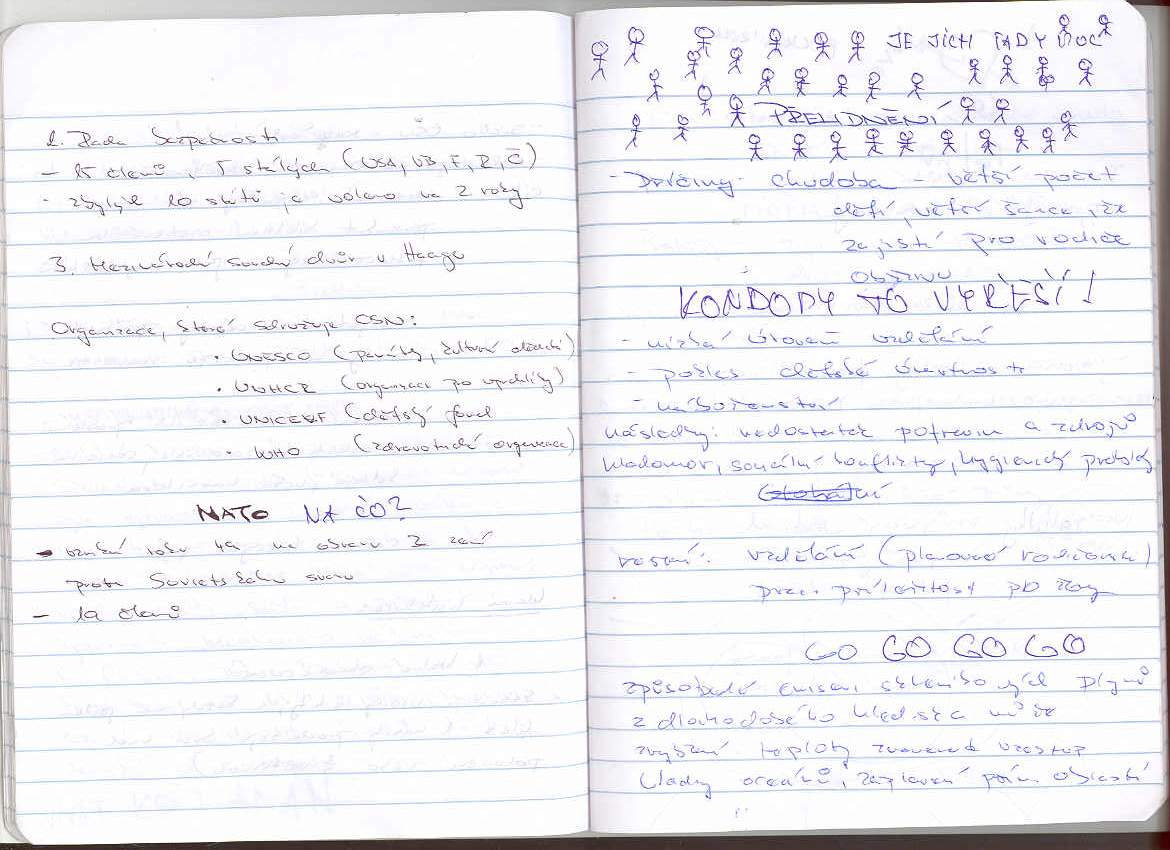 2. Rada bezpečnosti
– 15 členů, 5 stálých (USA, VB, F, R, Č)
- zbylých 10 států je voleno na 2 roky
3. Mezinárodní soudní dvůr v Haagu
Organizace, které sdružuje OSN:
• UNESCO (památky, kulturní dědictví)
• UNHCR (organizace po uprchlíky)
• UNICEF (dětský fond
• WHO (zdravotnická organizace)
NATO NA ČO?
- vznikání roku 49 na obranu Z zemí
proti Sovětskému svazu
– 19 členů
JE JICH TADY MOC
PŘELIDNĚNÍ
- Příčiny - chudoba - větší počet
dětí, větší šance, že
zajistí pro rodiče
obživu
KONDOMY TO VYŘEŠÍ!
- nízká úroveň vzdělání
- pokles dětské úmrtnosti
- náboženství
následky: nedostatek potravin a zdrojů
hladomor, sociální konflikty, hygienický problémy
řešení: vzdělání (plánovací rodičovství)
prac. příležitost pro ženy
GO GO GO GO
způsobené emisemi skleníkových plynů
z dlouhodobého hlediska může
zvýšení teploty znamenat vzestup
hladiny oceánů, zaplavení přím. oblastí